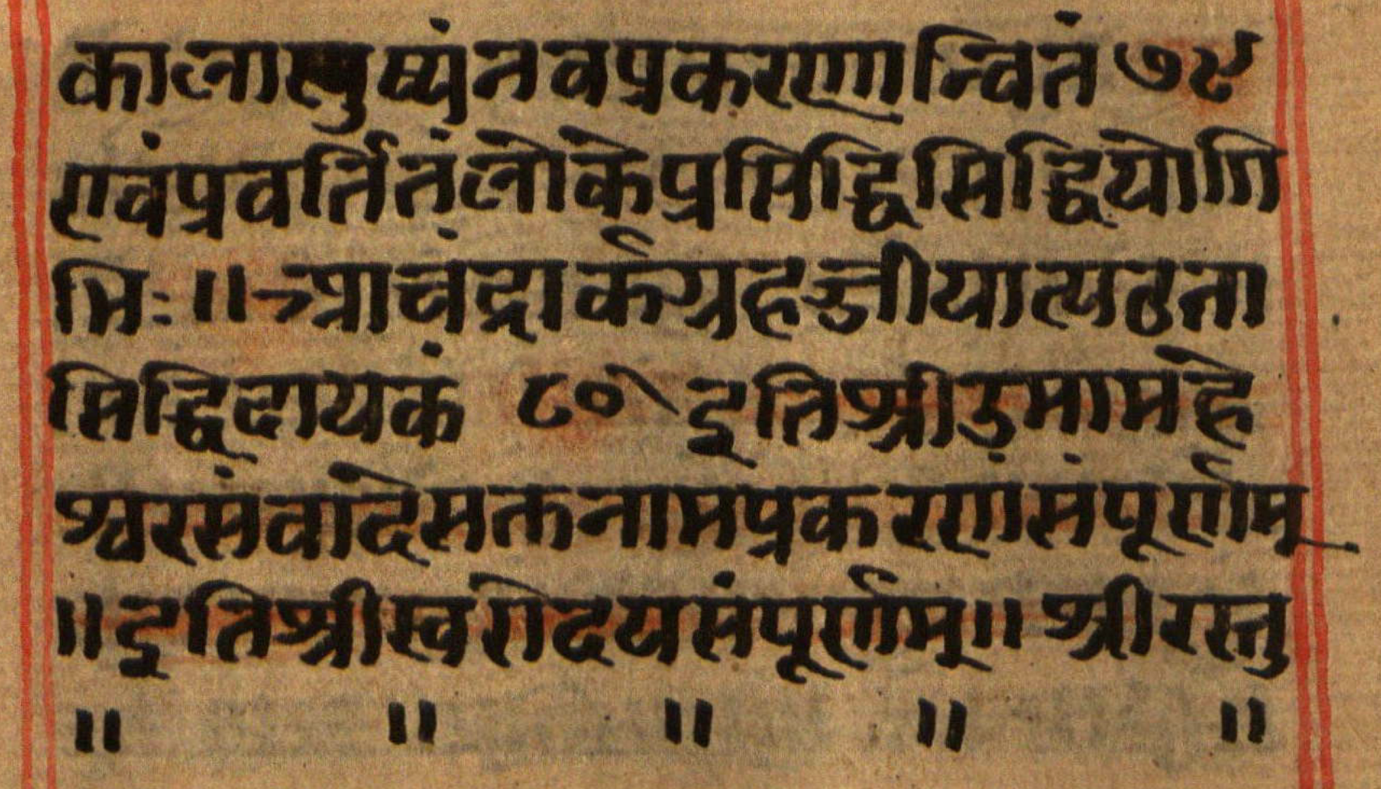 कालास्पुष्यंनवप्रकरणान्वितं ७९
एवंप्रवर्तितंलोकेप्रसिद्धिसिद्धियोगि
भिः ॥ आचंद्रार्कग्रहज्जीयात्पठता
सिद्धिदायकं ८० इतिश्रीउमामहे
श्वरसंवादेसक्तनामप्रकरणंसंपूर्णम्
॥ इतिश्रीस्वरोदयसंपूर्णम् ॥ श्रीरस्तु
॥ ॥ ॥ ॥ ॥